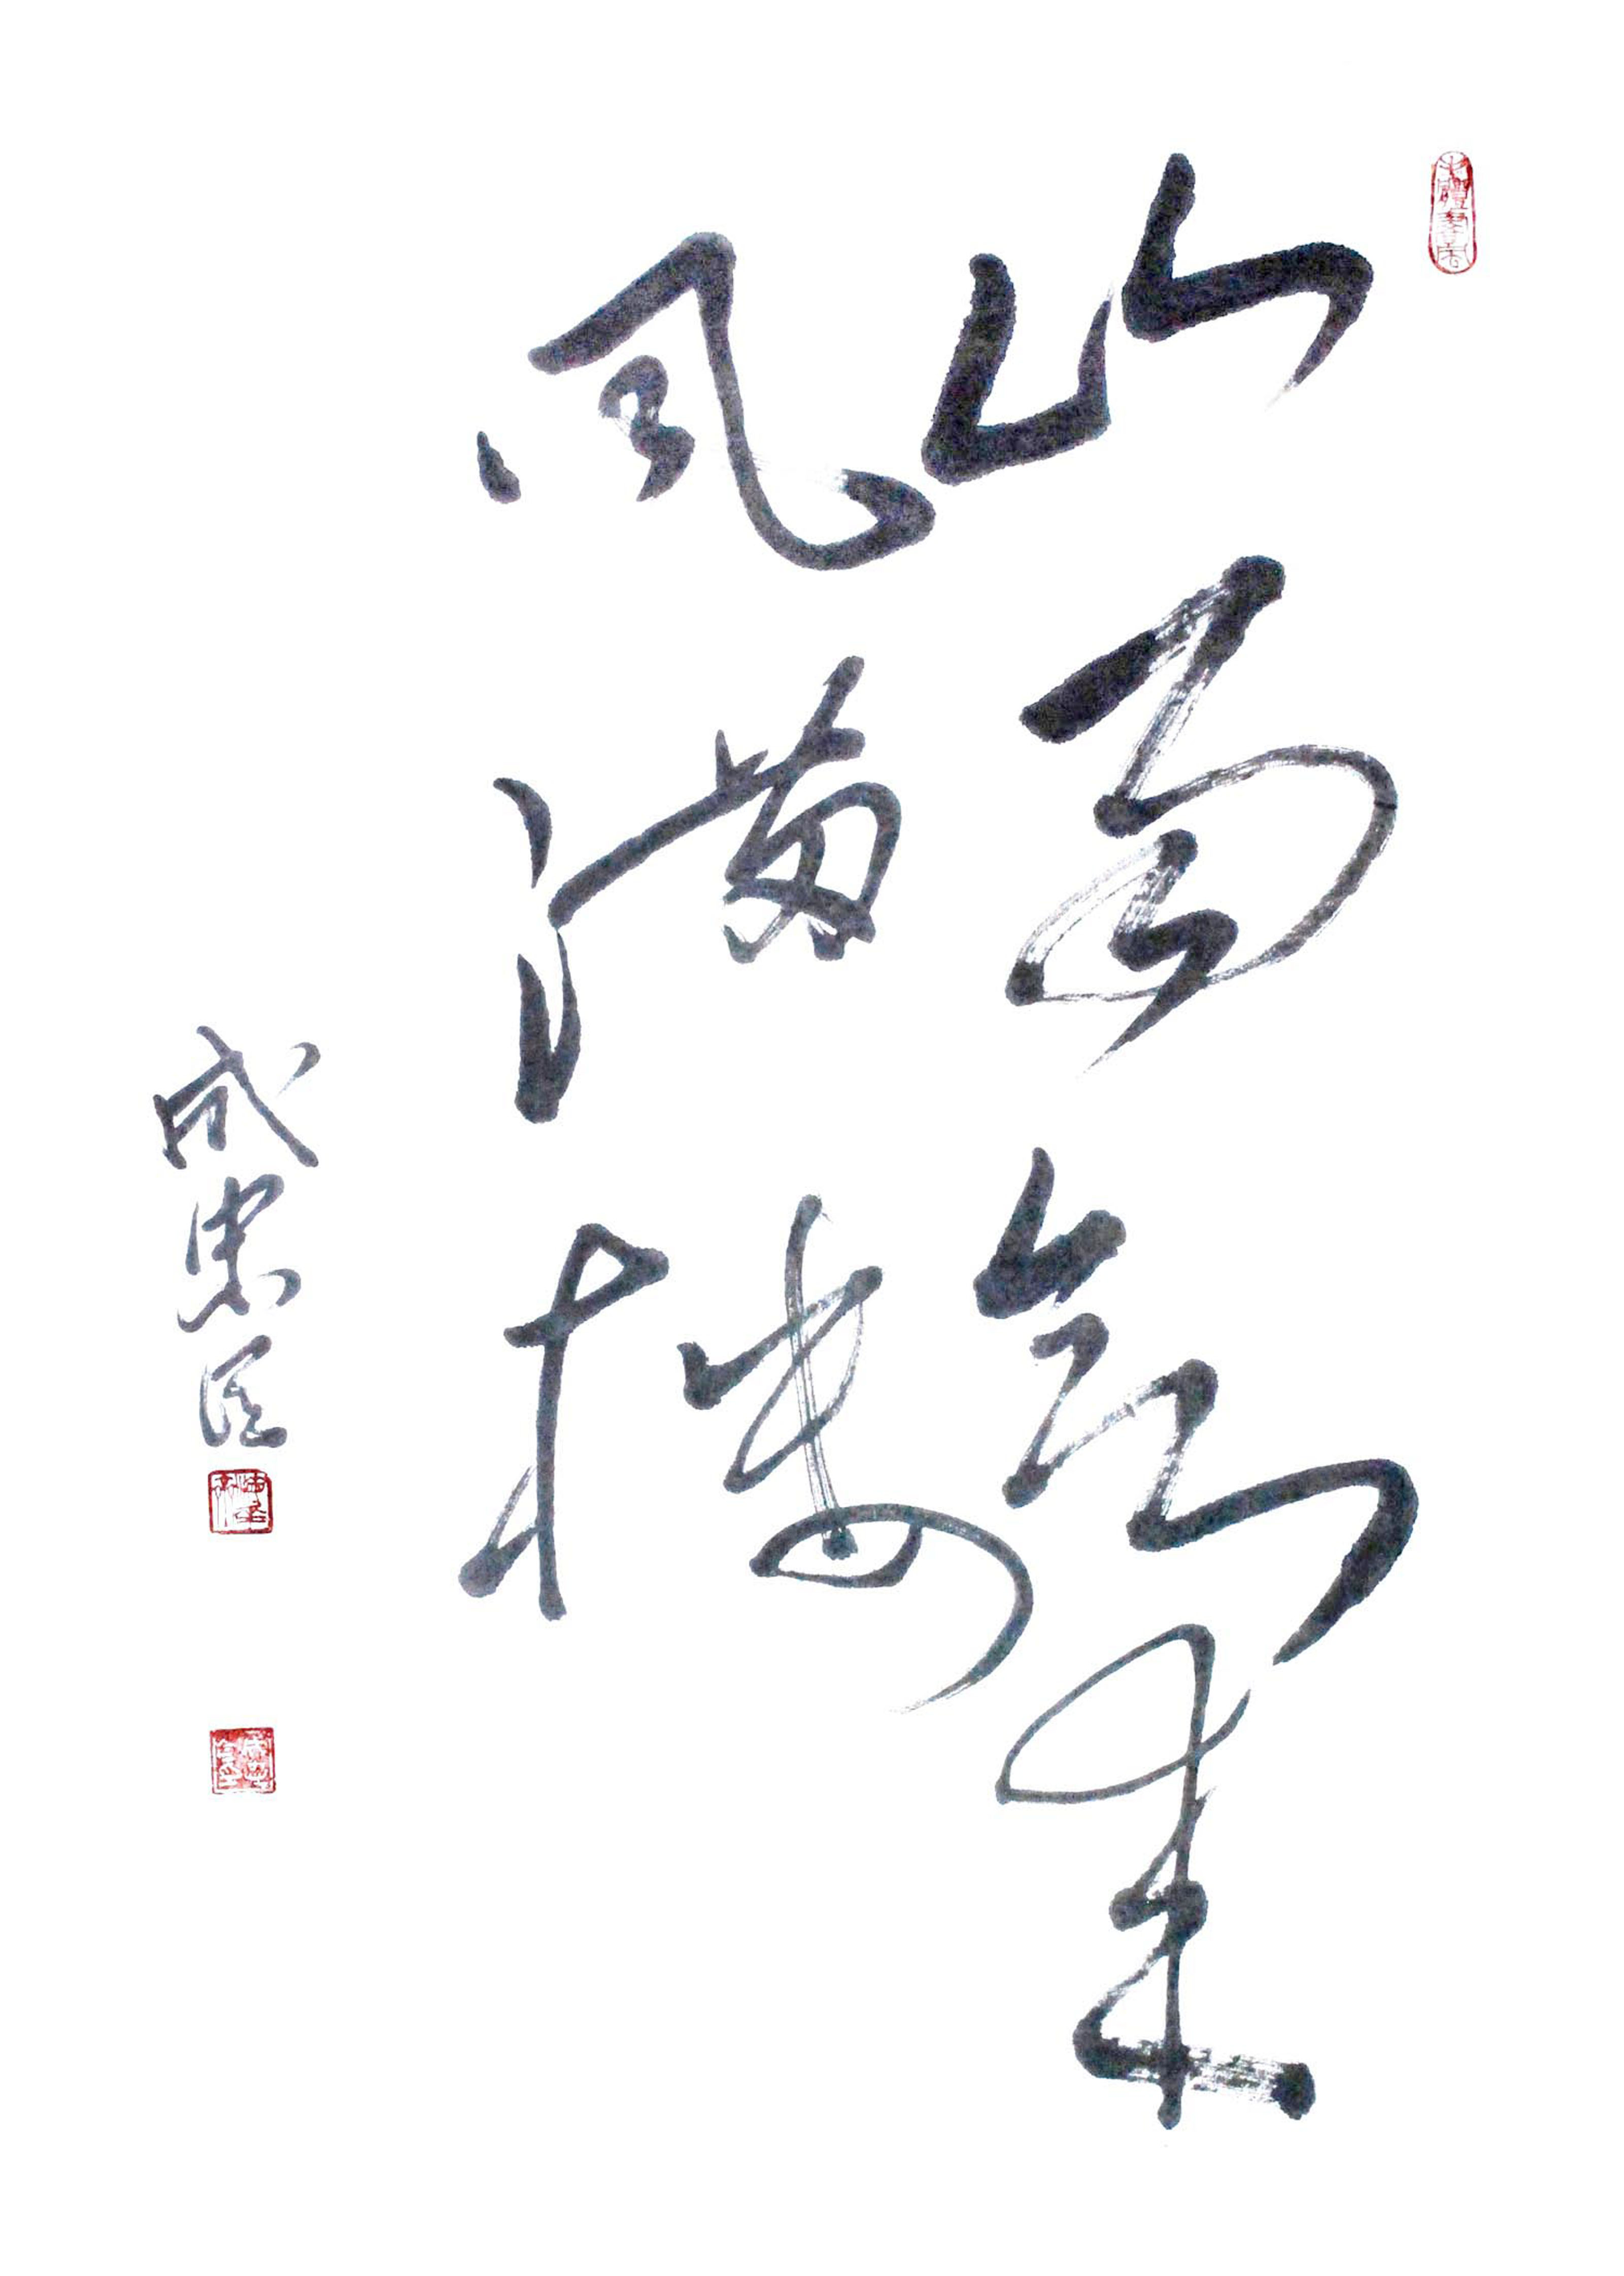 山雨欲来
风满楼
成忠臣